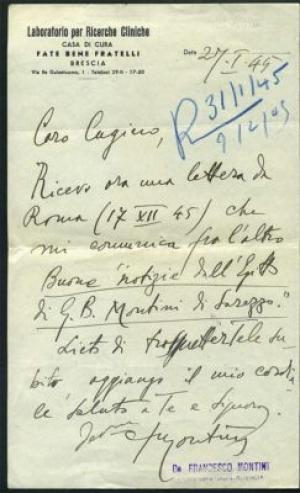 Laboratorio per Ricerche Cliniche
CASA DI CURA
FATE BENE FRATELLI
BRESCIA
Via Re Galantuomo, 1 - Telefoni 29-5 - 17-80
Data 27.I.45
R 31/1/45
9/2/45
Caro Cugino,
Ricevo ora una lettera da
Roma (17 XII 45) che
mi comunica fra l'altro
Buone "notizie dell'
di G. B. Montini di Sarezzo."
Lieto di trasmettertele su-
bito aggiungo il mio cordia-
le saluto a Te e Signora.
Montini
Dr. FRANCESCO MONTINI